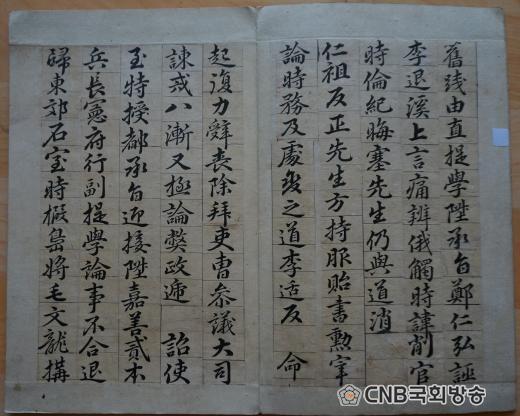 舊踐由直提學陞承旨鄭仁弘誣
李退溪上言痛辨俄觸時諱削官
時倫紀晦塞先生仍與道消
仁祖反正先生方持服貽書勳宰
論時務及處變之道李适反 命
起復力辭喪除拜吏曹參議大司
諫戒八漸又極論弊政遞 詔使
至特授都承旨迎接陞嘉善貳本
兵長憲府行副提學論事不合退
歸東郊石室時椵島將毛文龍搆
CNB국회방송